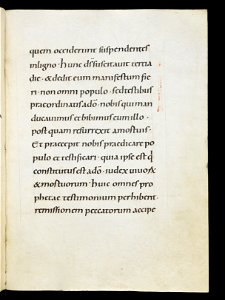 quem occiderunt suspendentes
inligno · hunc d̅s suscitauit tertia
die · & dedit eum manifestum fie
ri · non omni populo · sed testibus
praeordinatis ado̅ · nobis qui man
ducauimus et bibimus cum illo ·
post quam resurrexit amortuis ·
Et praecepit nobis praedicare po
pulo et testificari · quia ipse est q
constitutus est ado̅ · iudex uiuo4
& mortuorum · huic omnes pro
phetae testimonium perhibent ·
remissionem peccatorum accipe